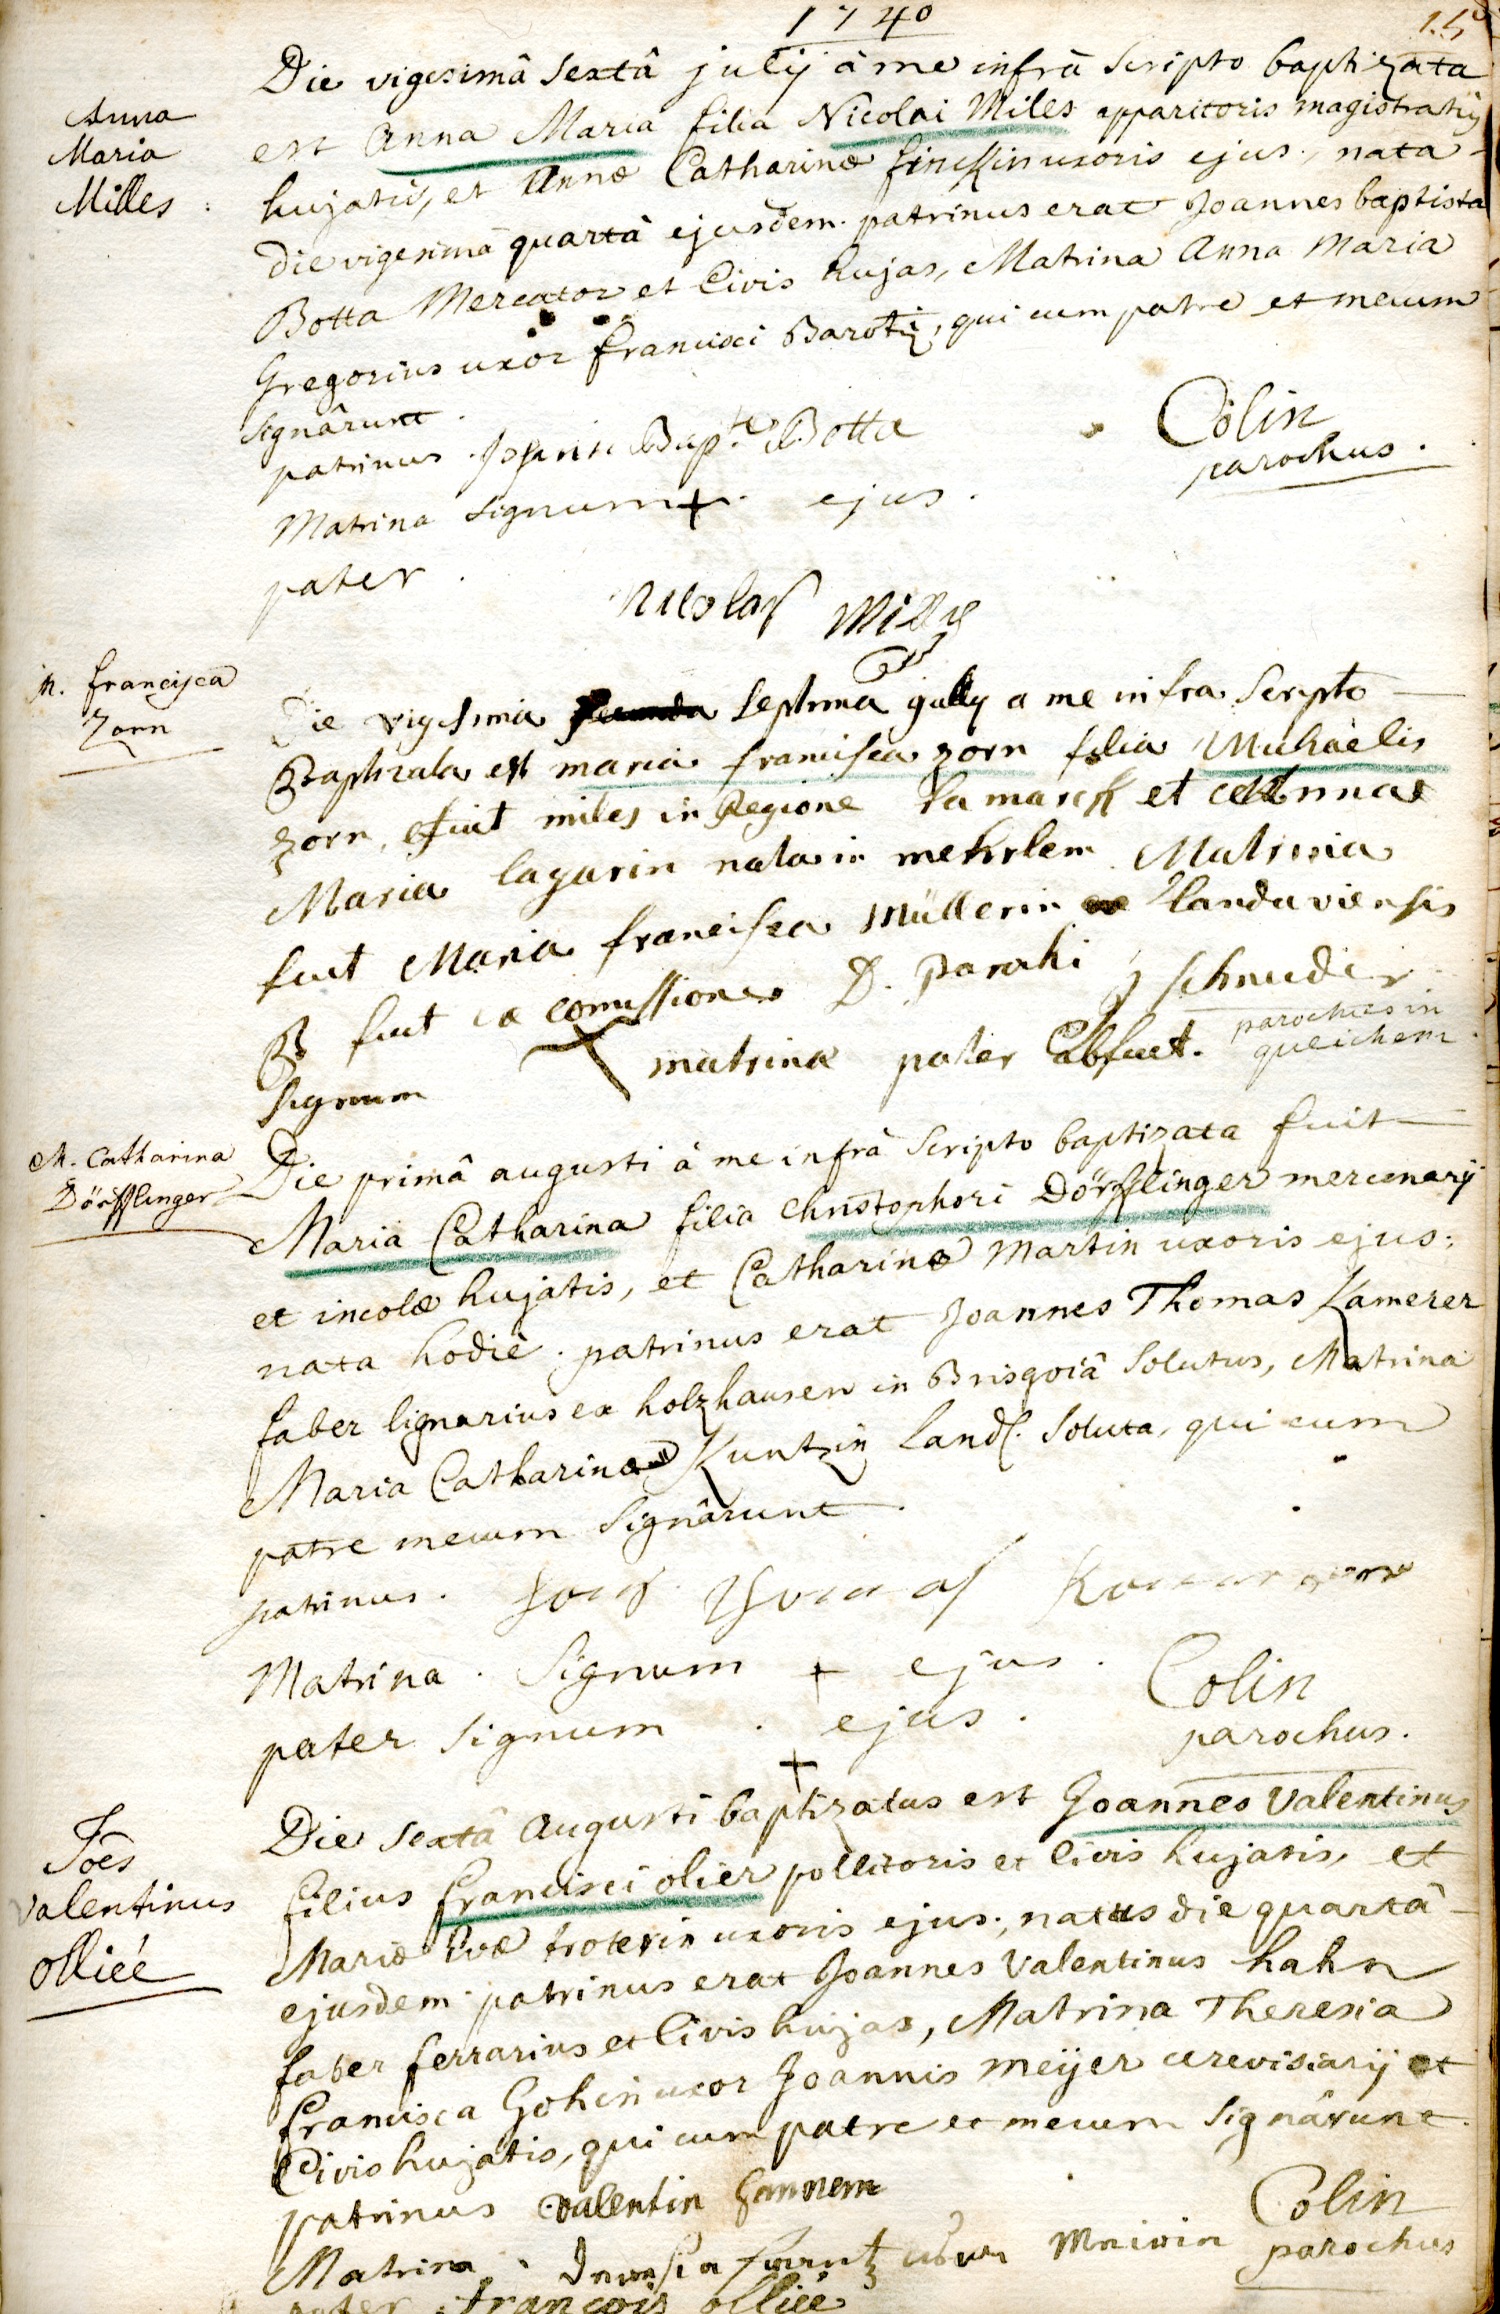 1740
Anna
Maria
Milles
Die vigesimâ sextâ julij â me infrà scripto baptizata
est Anna Maria filia Nicolai Miles apparitoris magistratûs
hujatis, et Annæ Catharinæ uxoris ejus, nata
die vigesimâ quartâ ejusdem. patrinus erat Joannes baptista
Botta Mercator et Civis hujas, Matrina Anna Maria
Gregorius uxor francisci Baroti, qui cum patre et mecum
signârunt.
patrinus. Bapte Botta
Colin
parochus.
Matrina signum + ejus.
pater. Nicolas
M. francisca
Zorn
Die vigesima septima july a me infra scripto
Baptizata est maria francisca zorn filia Michaelis
zorn, miles in Regione la marck et
Maria lazarin nata in Matrina
fuit Maria francisca Müllerin landaviensis
fuit ex comissione D. Parochi schneider
parochus in
queichem
signum matrina pater abfuit.
M. Catharina
Dörfflinger
Die primâ augusti à me infrà scripto baptizata fuit
Maria Catharina filia Christophori Dörfflinger mercenarij
et incolæ hujatis, et Catharinæ Martin uxoris ejus,
nata hodiè. patrinus erat Joannes Thomas Kamerer
faber lignarius ex holzhausen in Brisgoiâ solutus, Matrina
Maria Catharina Kuntzin land. soluta, qui cum
patre mecum signârunt.
patrinus.
Matrina. signum + ejus.
Colin
parochus.
pater signum + ejus.
Joes
Valentinus
olliéé
Die sextâ Augusti baptizatus est Joannes Valentinus
filius francisci olier pollitoris et Civis hujatis, et
Mariæ Evæ troterin uxoris ejus, natus die quartâ
ejusdem. patrinus erat Joannes Valentinus hahn
faber ferrarius et Civis hujas, Matrina Theresia
francisca Gohin uxor Joannis Meijer cerevisiarij et
Civis hujatis, qui cum patre et mecum signârunt.
patrinus Valentin
Colin
parochus
Matrina.
pater. françois olliéé